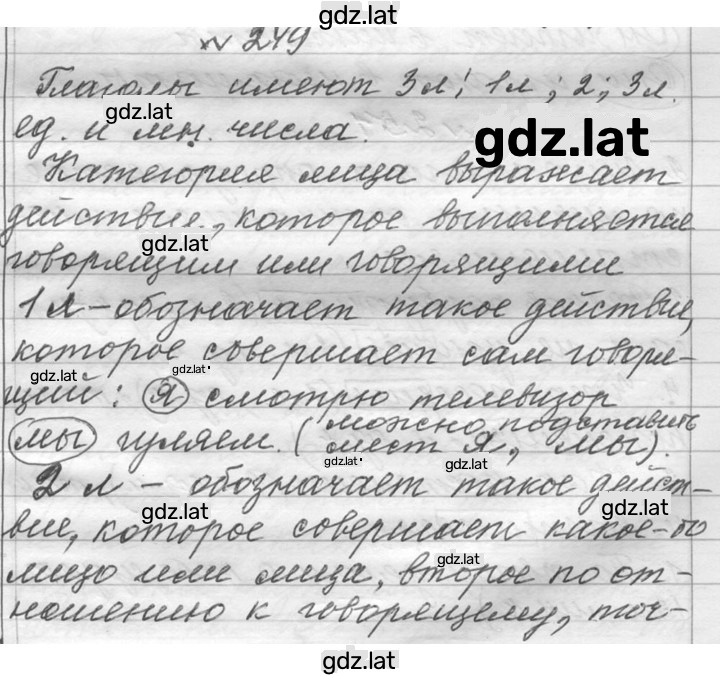 gdz.lat
№ 249
Глаголы имеют 3 л: 1 л; 2; 3 л.
gdz.lat
ед. и мн. числа.
gdz.lat
Категория лица выражает
действие, которое выполняется
gdz.lat
говорящим или говорящими
1 л - обозначает такое действие,
которое совершает сам говоря-
gdz.lat
gdz.lat
щий: я смотрю телевизор
мы гуляем. (можно подставить
мест я, мы).
gdz.lat
gdz.lat
2 л - обозначает такое дейст-
gdz.lat
gdz.lat
вие, которое совершает какое-то
gdz.lat
лицо или лица, второе по от-
ношению к говорящему, точ-
gdz.lat